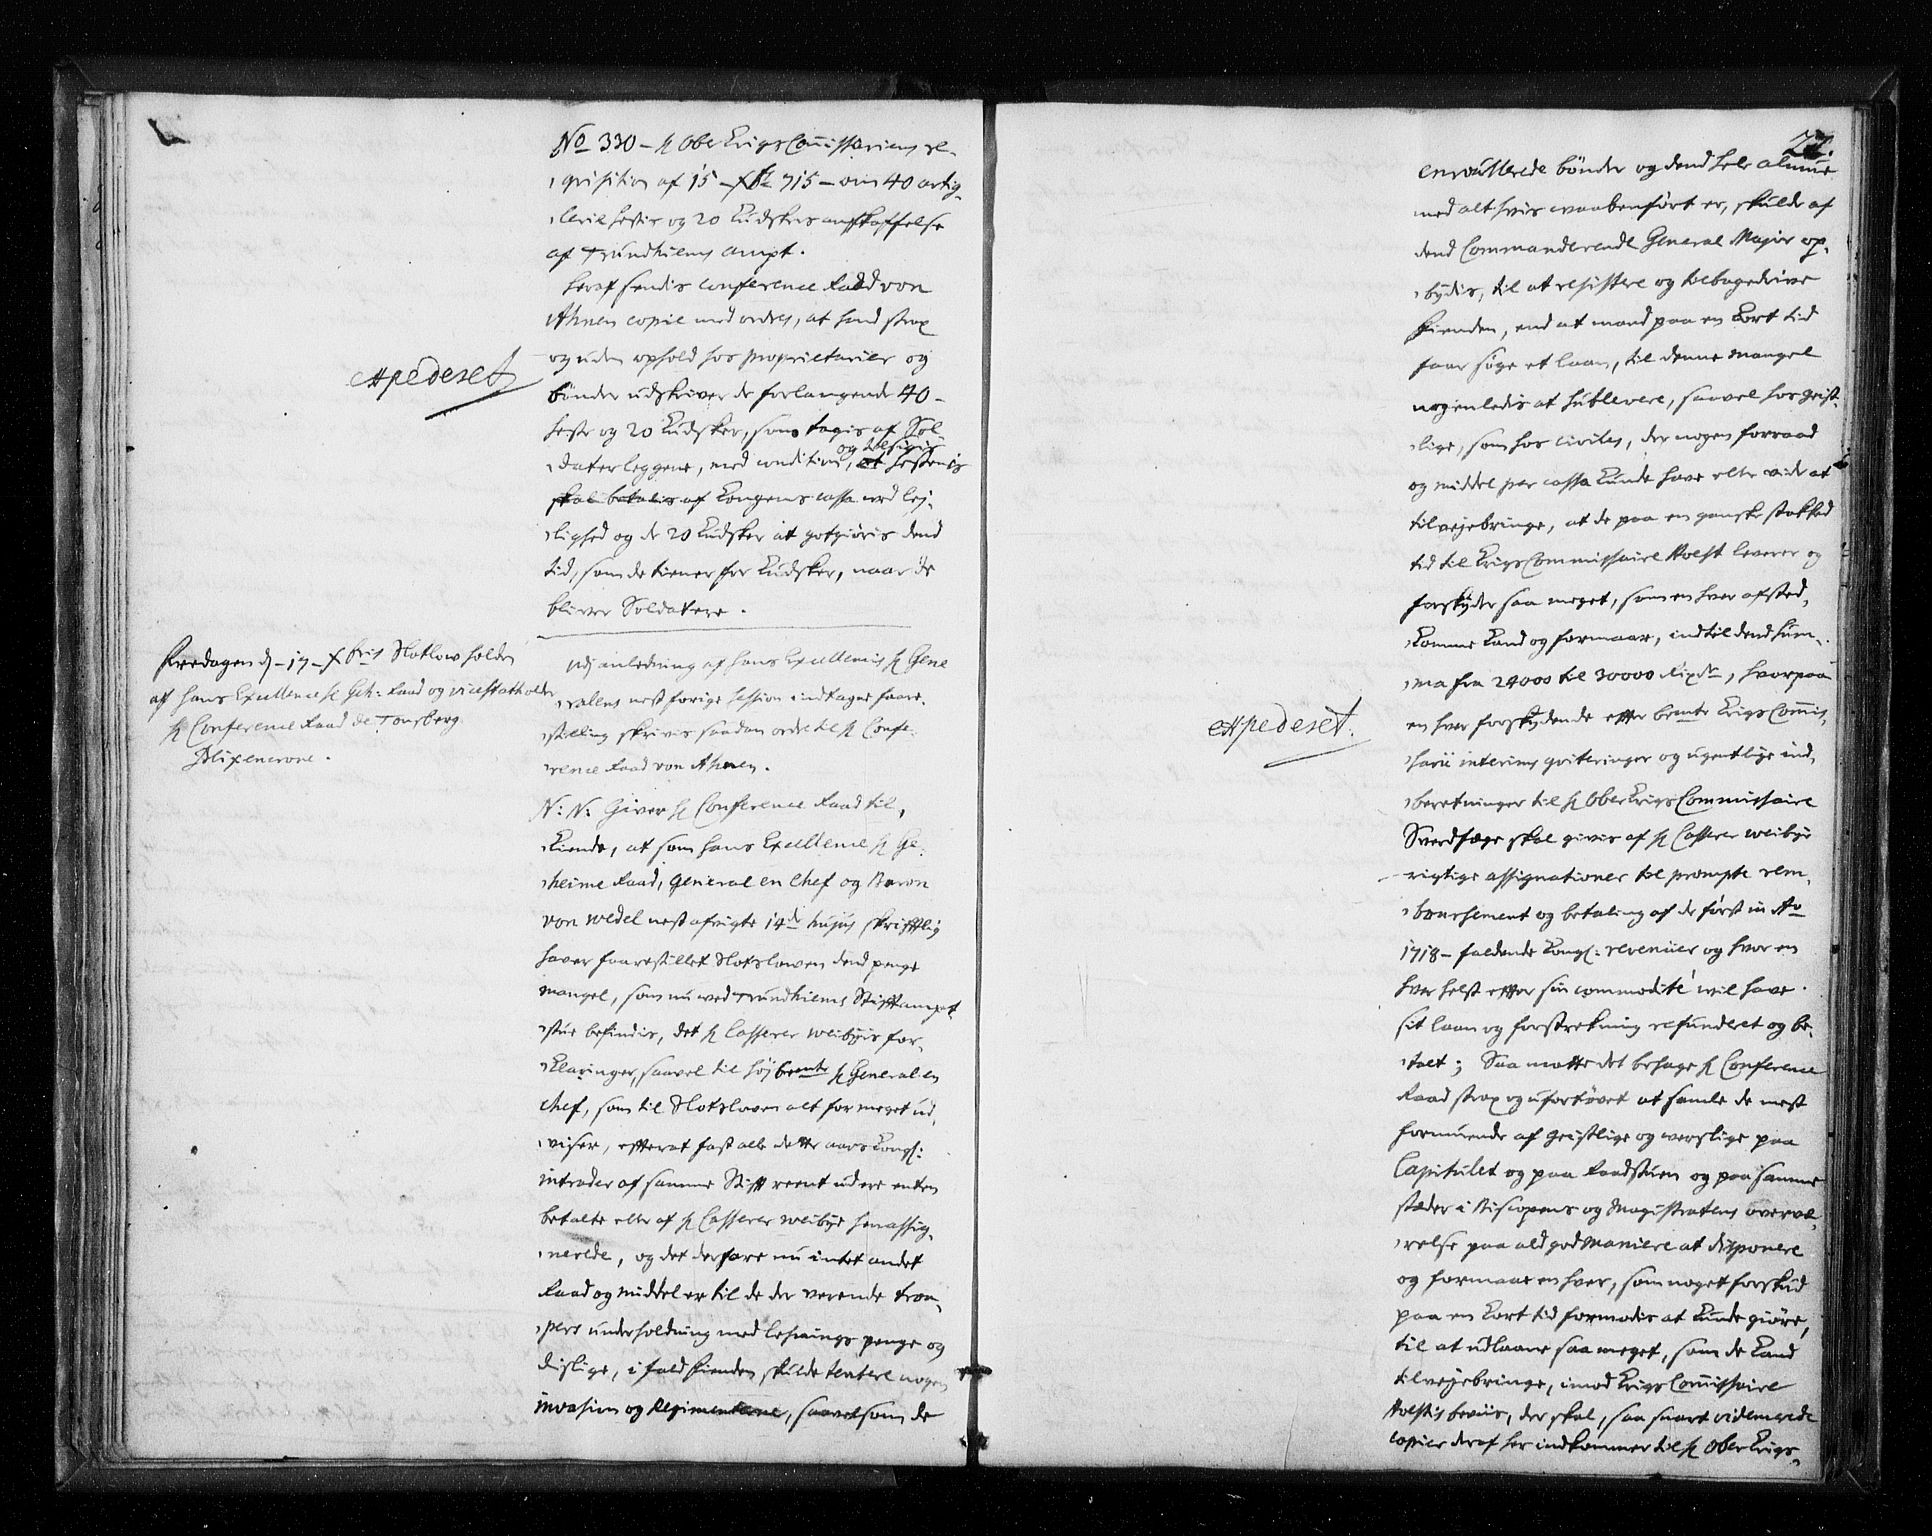 No 330 - H Ober Krigs Commissariens re-
qvisition af 15 - Xbr 715 - om 40 artig-
lerie heste og 20 Kudskes anskaffelse
af Trundhiems ampt.
heraf sendis conference Raad von
Ahnen copie med ordre, at hand strax
og uden ophold hos proprietarier og
Expederet
bønder udskriver de forlangende 40 -
heste og 20 Kudsker, som tagis af Sol-
og
daterleggene, med condition, at hestenis
skal betalis af Kongens cassa ved lej-
lighed og de 20 Kudsker at godtgiøris dend
tid, som de tiener for Kudsker, naar de
bliver Soldatere.
Fredagen d - 17 - Xbris Slotlow holden
af hans Excellence H Geh: Raad og vicestatholder
H Conference Raad de Tonsberg
Blixencrone.
Udj anledning af hans Excellences H Gene
rallens nest forige session indtagne faare-
stilling skrivis saadan ordre til H Confe-
rence Raad von Ahnen.
N: N: Giver H Conference Raad til
kiende, at som hans Excellence H Ge-
heime Raad, General en Chef og Baron
von Wedel nest afvigte 14de hujus skrifftlig
haver faarestillet Slotsloven dend penge
mangel, som nu ved Trundhiems Stifftampt-
stue befindis, det H Casserer Weibyes for-
klaringer, saavel til højbemte H General en
Chef, som til Slotsloven alt for meget ud-
viser, efterat fast alle dette aars Kongl:
intrader af samme Stifft reent ud ere enten
betalte eller af H Casserer Weibye henassig-
nerede, og det derfore nu intet andet
Raad og middel er til de der verende trou-
pers underholdning med lehnings penge og
deslige, i fald fienden skulde tentere nogen
invasion og Regimenterne, saavelsom de
22.
enroullerede bønder og dend hele almue
med alt hvis vaabenført er, skulde af
dend Commanderende General Major op-
bydis, til at resistere og tilbagedrive
fienden, end at mand paa en kort tid
faar søge et laan, til denne mangel
nogenledis at sublevere, saavel hos geist-
lige, som hos civiles, der nogen forraad
og middel per cassa kunde have eller vide at
tilvejebringe, at de paa en ganske stakked
tid til Krigs Commissaire Holst leverer og
forskyder saa meget, som en hver afsted-
komme kand og formaar, indtil dend sum-
ma fra 24000 til 30000 Rixdr, hvorpaa
Expederet.
en hver forskydende efter bemte Krigs Commis-
sarii interims qviteringer og ugentlige ind-
beretninger til H Ober Krigs Commissaire
Sverdfæge skal givis af H Casserer Weibye
rigtige assignationer til prompte rem-
boursement og betaling af de først in Ao
1718 - faldende Kongl: revenüer og hvor en
hver helst efter sin commodité vil have
sit laan og forstrekning refunderet og be-
talt; Saa motte det behage H Conference
Raad strax og ufortøvet at samle de mest
formuende af geistlige og verslige paa
Capitulet og paa Raadstuen og paa samme
steder i Biscopens og Magistratens overvæ-
relse paa all god maniere at disponere
og formaae en hver, som noget forskud
paa en kort tid formodis at kunde giøre,
til at udlaane saa meget, som de kand
tilvejebringe, imod Krigs Commissaire
Holstis beviis, der skal, saa snart videmerede
copier deraf her indkommer til H Ober Krigs-